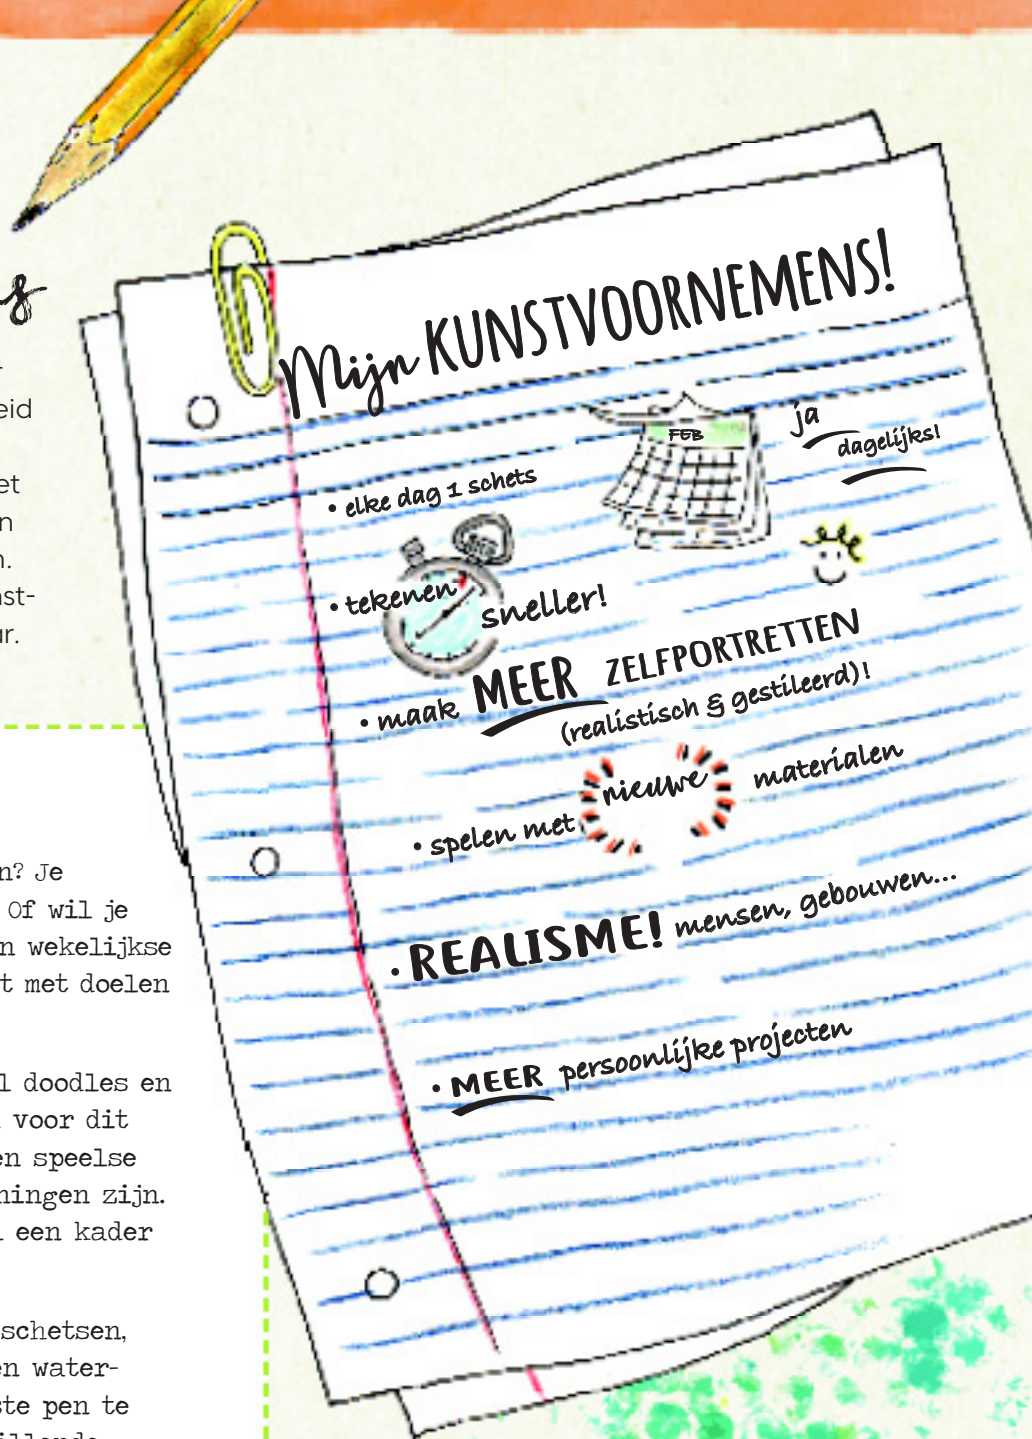 eid
et
n
n.
nst-
ar.
n? Je
Of wil je
n wekelijkse
t met doelen
l doodles en
voor dit
en speelse
ningen zijn.
een kader
schetsen,
en water-
ste pen te
Mijn KUNSTVOORNEMENS!
FEB
ja
dagelijks!
• elke dag 1 schets
• tekenen sneller!
• maak MEER ZELFPORTRETTEN
(realistisch & gestileerd)!
• spelen met nieuwe materialen
• REALISME! mensen, gebouwen...
• MEER persoonlijke projecten